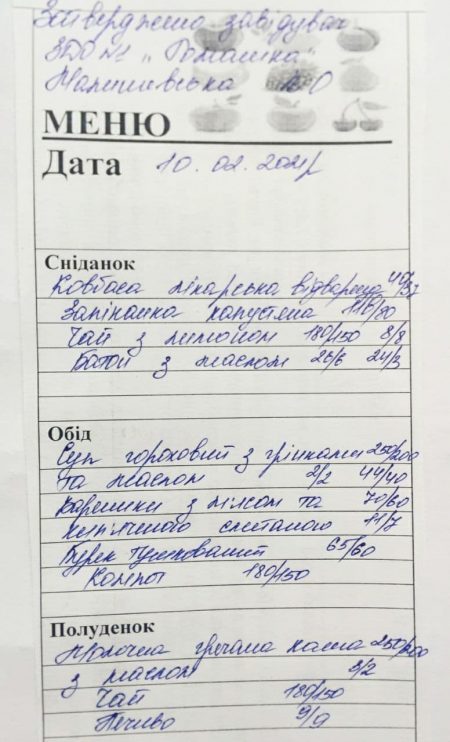 Затверджено завідувач
ЗДО №1 „Ромашка"
МЕНЮ
Дата 10. 02. 2021р
Сніданок
Ковбаса лікарська відварена
Запіканка капустяна 110/80
Чай з лимоном 180/150 8/8
Батон з маслом 26/6 24/3
Обід
Суп гороховий з грінками 250/200
та маслом 2/2 44/40
Вареники з м'ясом та 70/60
кип'яченою сметаною 11/7
Буряк тушкований 65/60
Компот 180/150
Полуденок
Молочна гречана каша 250/200
з маслом 2/2
Чай 180/150
Печиво 9/9